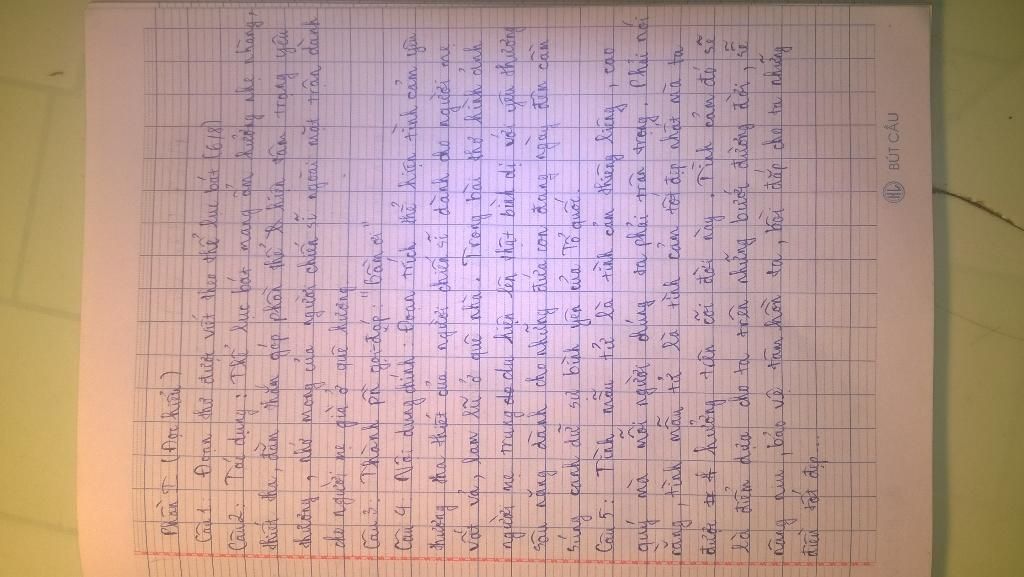 Phần I (Đọc hiểu)
Câu 1: Đoạn thơ được viết theo thể lục bát (6/8)
Câu 2: Tác dụng: Thể lục bát mang âm hưởng nhẹ nhàng,
thiết tha, đằm thắm góp phần thể hiện tấm trong yêu
thương, nhớ mong của người chiến sĩ ngoài mặt trận dành
cho người mẹ già ở quê hương
Câu 3: Thành pần gọi-đáp: "bầm ơi"
Câu 4: Nội dung chính: Đoạn trích thể hiện tình cảm yêu
thương tha thiết của người chiến sĩ dành cho người mẹ
vất vả, lam lũ ở quê nhà. Trong bài thơ hình ảnh
người mẹ trung du hiện lên thật bình dị với yêu thương
sâu nặng dành cho những đứa con đang ngày đêm cầm
súng canh dữ sự bình yên của Tổ quốc.
Câu 5: Tình mẫu tử là tình cảm thiêng liêng, cao
quý mà mỗi người đúng ta phải trân trọng. Phải nói
rằng, tình mẫu tử là tình cảm tốt đẹp nhất mà ta
được hưởng trên cõi đời này. Tình cảm đó sẽ
là điểm dựa cho ta trên những bước đường đời, sẽ
nâng niu, bảo vệ tâm hồn ta, bồi đắp cho ta những
điều tốt đẹp...
BÚT CẦU